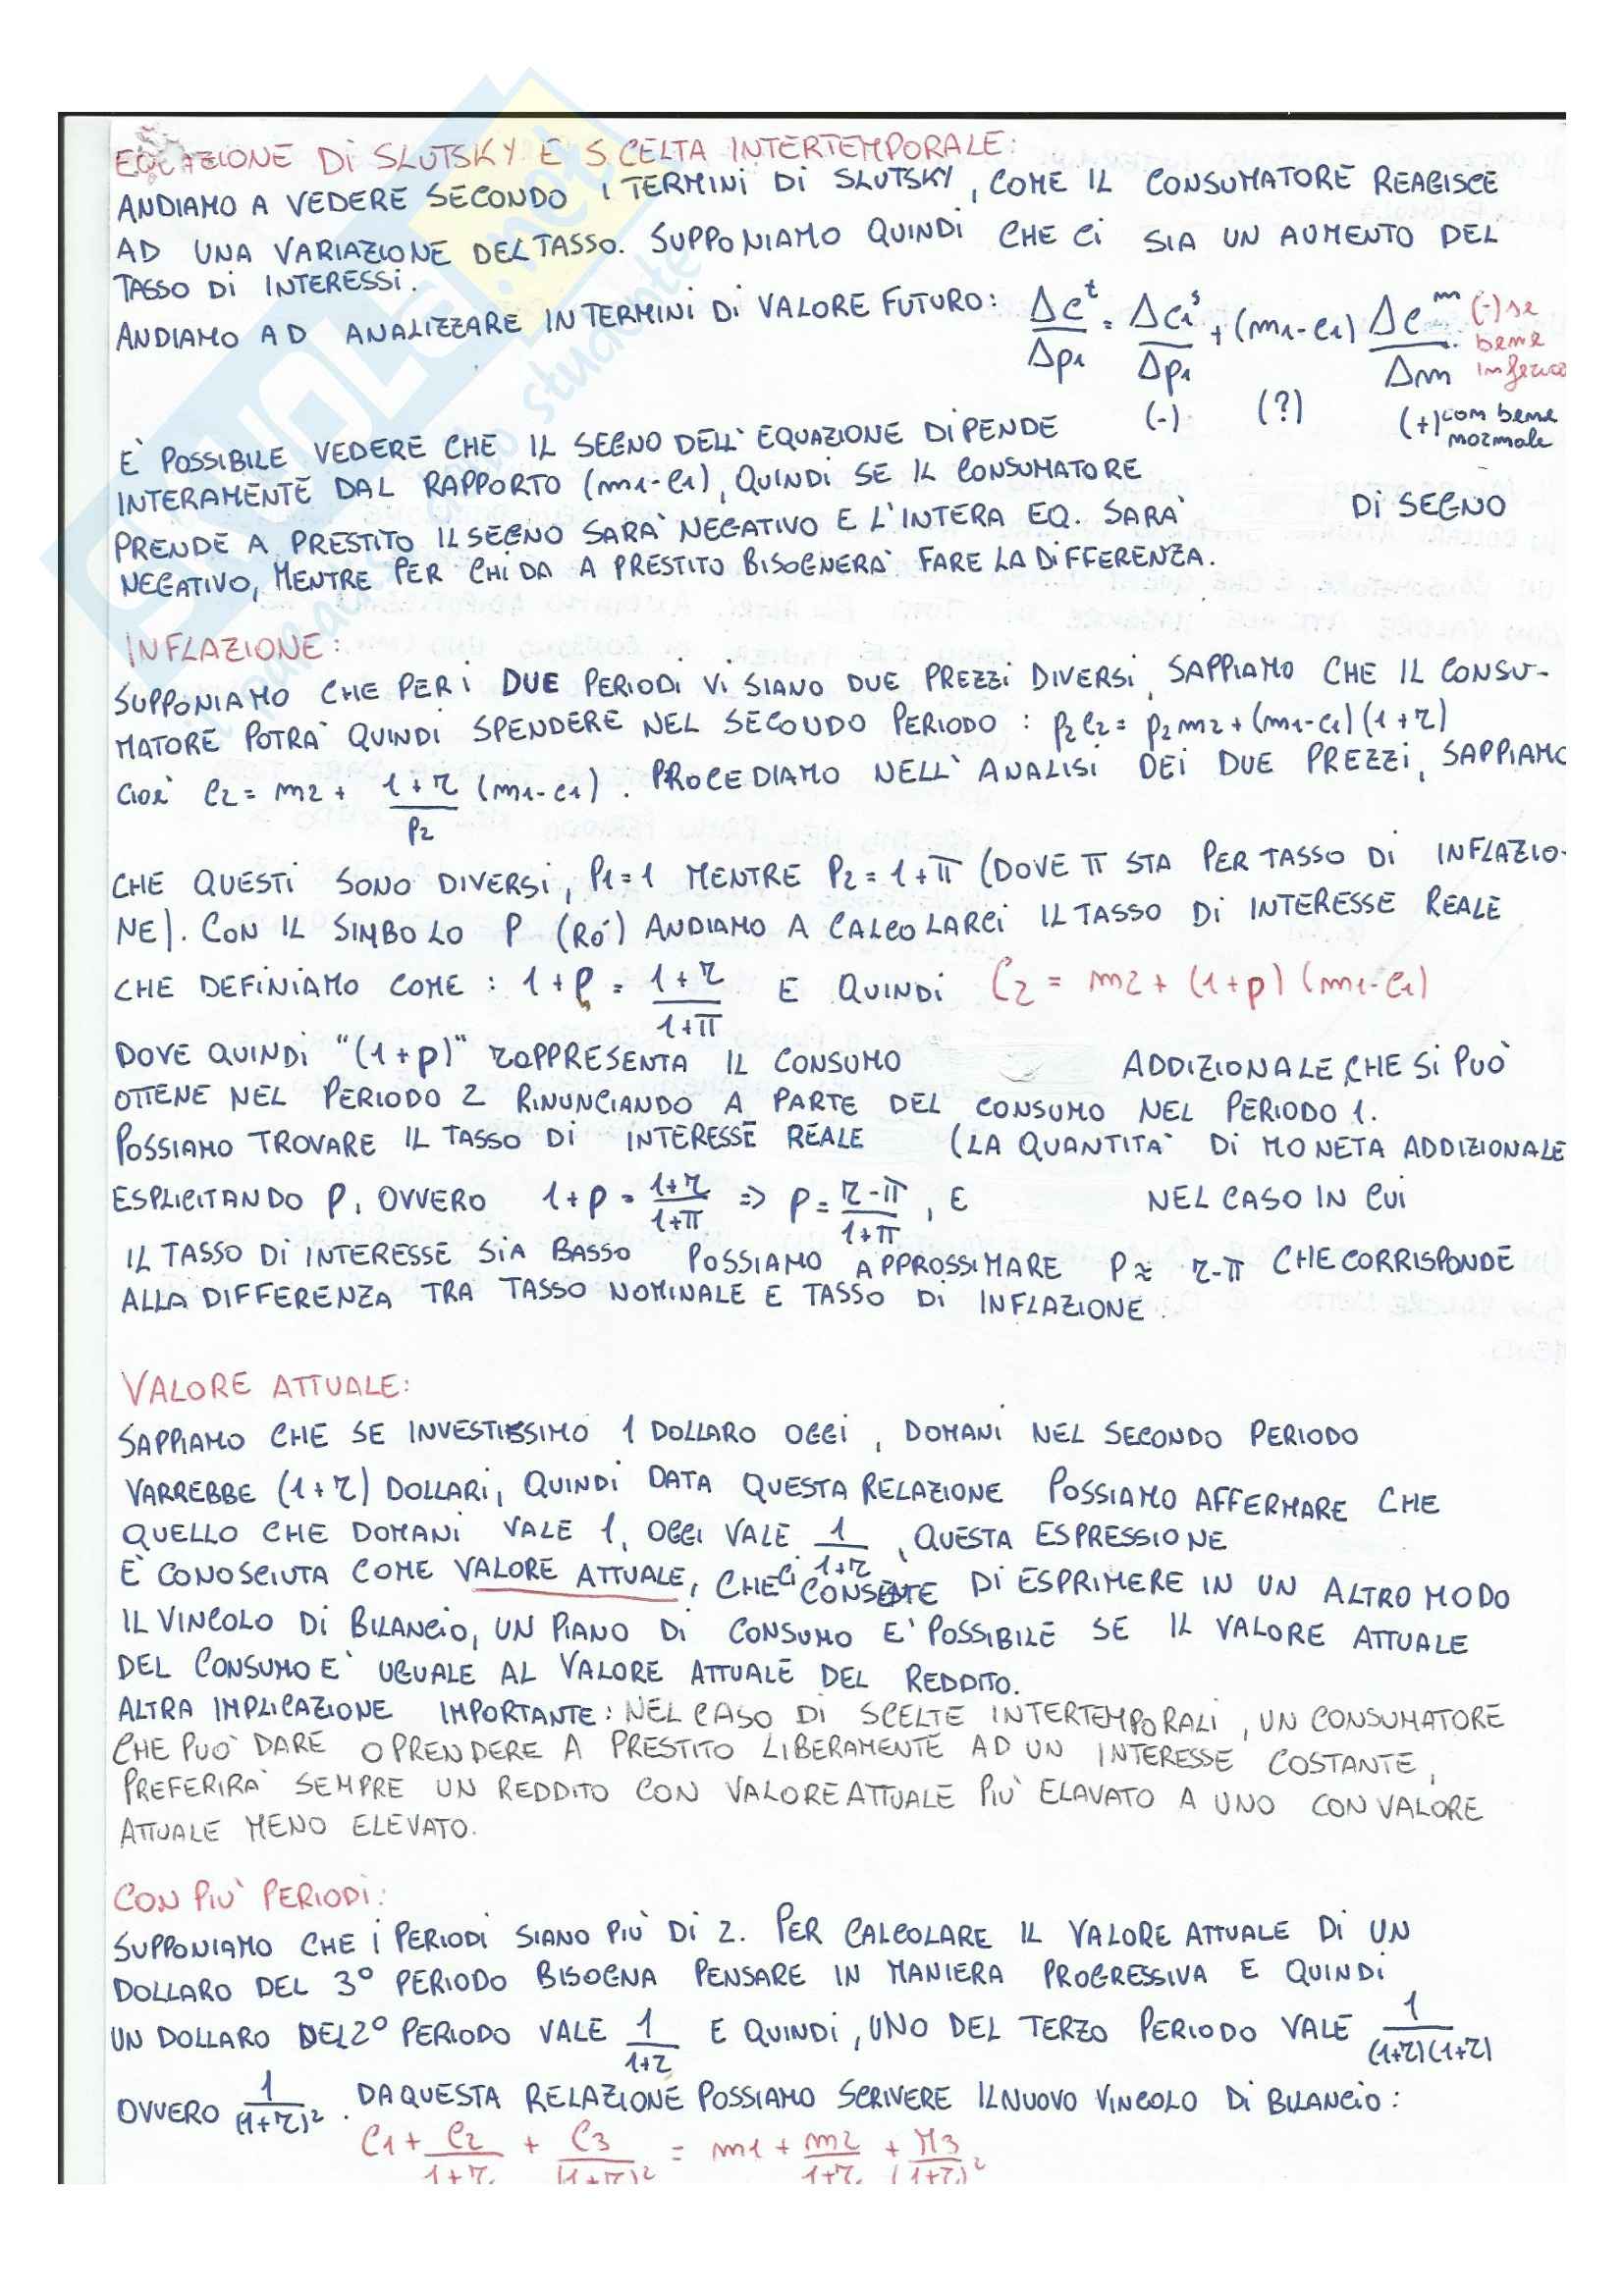 EQUAZIONE DI SLUTSKY E SCELTA INTERTEMPORALE:
ANDIAMO A VEDERE SECONDO I TERMINI DI SLUTSKY, COME IL CONSUMATORE REAGISCE
AD UNA VARIAZIONE DEL TASSO. SUPPONIAMO QUINDI CHE CI SIA UN AUMENTO DEL
TASSO DI INTERESSI.
ANDIAMO AD ANALIZZARE IN TERMINI DI VALORE FUTURO: Δc^t/Δp1 = Δc1^s/Δp1 + (m1-c1) Δc^m/Δm (-) se bene inferio
(-) (?) (+) con bene normale
È POSSIBILE VEDERE CHE IL SEGNO DELL'EQUAZIONE DIPENDE
INTERAMENTE DAL RAPPORTO (m1-c1), QUINDI SE IL CONSUMATORE
PRENDE A PRESTITO IL SEGNO SARA' NEGATIVO E L'INTERA EQ. SARA' DI SEGNO
NEGATIVO, MENTRE PER CHI DA A PRESTITO BISOGNERA' FARE LA DIFFERENZA.
INFLAZIONE:
SUPPONIAMO CHE PER I DUE PERIODI VI SIANO DUE PREZZI DIVERSI, SAPPIAMO CHE IL CONSU-
MATORE POTRA' QUINDI SPENDERE NEL SECONDO PERIODO : p2c2 = p2m2 + (m1-c1)(1+r)
cioè c2 = m2 + (1+r)/p2 (m1-c1). PROCEDIAMO NELL'ANALISI DEI DUE PREZZI, SAPPIAMO
CHE QUESTI SONO DIVERSI, P1=1 MENTRE P2=1+π (DOVE π STA PER TASSO DI INFLAZIO-
NE). CON IL SIMBOLO ρ (RÓ) ANDIAMO A CALCOLARCI IL TASSO DI INTERESSE REALE
CHE DEFINIAMO COME : 1+ρ = (1+r)/(1+π) E QUINDI C2 = m2 + (1+ρ)(m1-c1)
DOVE QUINDI "(1+ρ)" RAPPRESENTA IL CONSUMO ADDIZIONALE, CHE SI PUÒ
OTTENE NEL PERIODO 2 RINUNCIANDO A PARTE DEL CONSUMO NEL PERIODO 1.
POSSIAMO TROVARE IL TASSO DI INTERESSE REALE (LA QUANTITA' DI MONETA ADDIZIONALE
ESPLICITANDO ρ, OVVERO 1+ρ = (1+r)/(1+π) => ρ = (r-π)/(1+π), E NEL CASO IN CUI
IL TASSO DI INTERESSE SIA BASSO POSSIAMO APPROSSIMARE ρ ≈ r-π CHE CORRISPONDE
ALLA DIFFERENZA TRA TASSO NOMINALE E TASSO DI INFLAZIONE.
VALORE ATTUALE:
SAPPIAMO CHE SE INVESTISSIMO 1 DOLLARO OGGI, DOMANI NEL SECONDO PERIODO
VARREBBE (1+r) DOLLARI, QUINDI DATA QUESTA RELAZIONE POSSIAMO AFFERMARE CHE
QUELLO CHE DOMANI VALE 1, OGGI VALE 1/(1+r), QUESTA ESPRESSIONE
È CONOSCIUTA COME VALORE ATTUALE, CHE CI CONSENTE DI ESPRIMERE IN UN ALTRO MODO
IL VINCOLO DI BILANCIO, UN PIANO DI CONSUMO E' POSSIBILE SE IL VALORE ATTUALE
DEL CONSUMO E' UGUALE AL VALORE ATTUALE DEL REDDITO.
ALTRA IMPLICAZIONE IMPORTANTE: NEL CASO DI SCELTE INTERTEMPORALI, UN CONSUMATORE
CHE PUO' DARE O PRENDERE A PRESTITO LIBERAMENTE AD UN INTERESSE COSTANTE,
PREFERIRA' SEMPRE UN REDDITO CON VALORE ATTUALE PIU' ELAVATO A UNO CON VALORE
ATTUALE MENO ELEVATO.
CON PIU' PERIODI:
SUPPONIAMO CHE I PERIODI SIANO PIÙ DI 2. PER CALCOLARE IL VALORE ATTUALE DI UN
DOLLARO DEL 3° PERIODO BISOGNA PENSARE IN MANIERA PROGRESSIVA E QUINDI
UN DOLLARO DEL 2° PERIODO VALE 1/(1+r) E QUINDI, UNO DEL TERZO PERIODO VALE 1/((1+r)(1+r))
OVVERO 1/(1+r)². DA QUESTA RELAZIONE POSSIAMO SCRIVERE IL NUOVO VINCOLO DI BILANCIO:
C1 + C2/(1+r) + C3/(1+r)² = m1 + m2/(1+r) + M3/(1+r)²